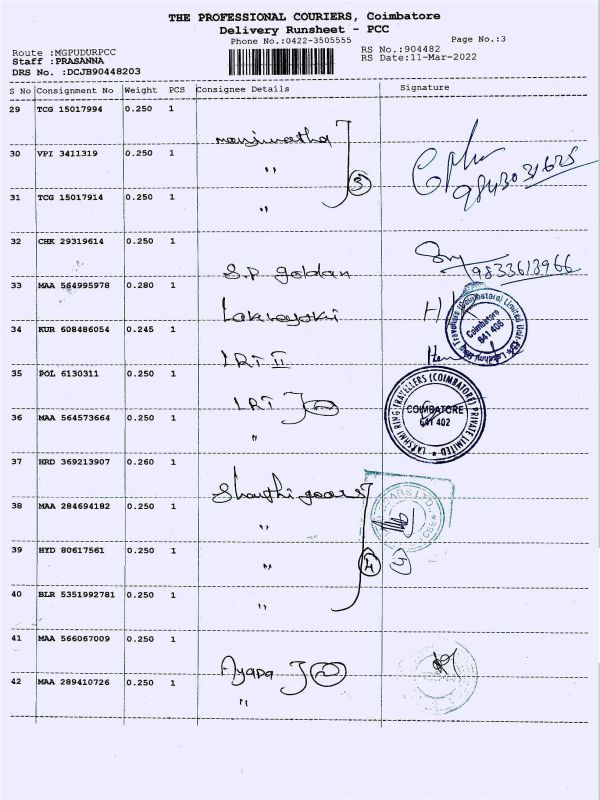 THE PROFESSIONAL COURIERS, Coimbatore
Delivery Runsheet - PCC
Phone No.:0422-3505555
Page No.:3
Route :MGPUDURPCC
RS No.:904482
Staff :PRASANNA
RS Date:11-Mar-2022
DRS No. :DCJB90448203
S No Consignment No Weight PCS Consignee Details Signature
29 TCG 15017994 0.250 1
manjunatha
30 VPI 3411319 0.250 1
" 3
9843031625
31 TCG 15017914 0.250 1
"
32 CHK 29319614 0.250 1
S.P goldan
9833613966
33 MAA 564995978 0.280 1
34 KUR 608486054 0.245 1
Coimbatore
641 406
LRT II
35 POL 6130311 0.250 1
LRT 2
LAKSHMI RING TRAVELLERS (COIMBATORE) PRIVATE LIMITED
COIMBATORE
641 402
36 MAA 564573664 0.250 1
"
37 HRD 369213907 0.260 1
Shanthi gears
38 MAA 284694182 0.250 1
"
39 HYD 80617561 0.250 1
" 4
40 BLR 5351992781 0.250 1
"
41 MAA 566067009 0.250 1
Ayapa 2
42 MAA 289410726 0.250 1
"